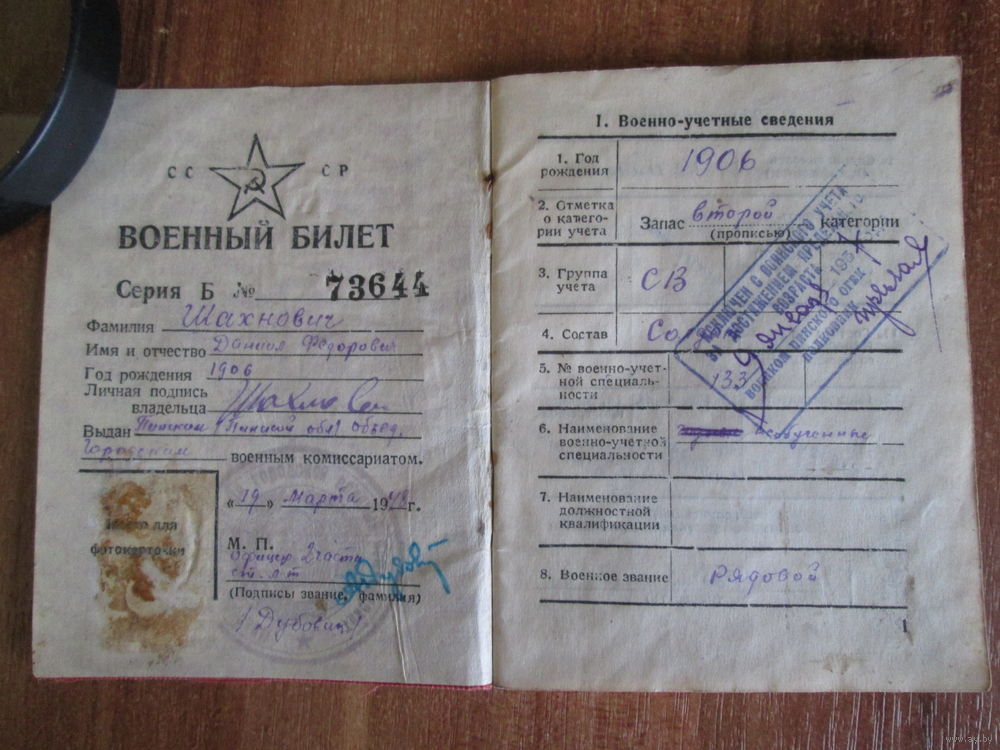 СС СР
ВОЕННЫЙ БИЛЕТ
Серия Б № 73644
Фамилия Шахнович
Имя и отчество Даниил Федорович
Год рождения 1906
Личная подпись
владельца
Выдан Пинским Пинской обл. объед.
Городским военным комиссариатом.
«19» марта 1948 г.
Место для
фотокарточки
М. П.
Офицер 2 части
ст. л-т
(Подписи звание, фамилия)
/Дубовик/
I. Военно-учетные сведения
1. Год
рождения
1906
2. Отметка
о катего-
рии учета
Запас второй категории
(прописью)
3. Группа
учета
СВ
4. Состав
5. № военно-учет-
ной специаль-
ности
133
6. Наименование
военно-учетной
специальности
необученные
7. Наименование
должностной
квалификации
8. Военное звание
Рядовой
ИСКЛЮЧЕН С ВОИНСКОГО УЧЕТА
ЗА ДОСТИЖЕНИЕМ ПРЕДЕЛЬНОГО
ВОЗРАСТА
9 января 1957
ВОЕНКОМ ПИНСКОГО ОГВК
ПОЛКОВНИК
1
www.ay.by